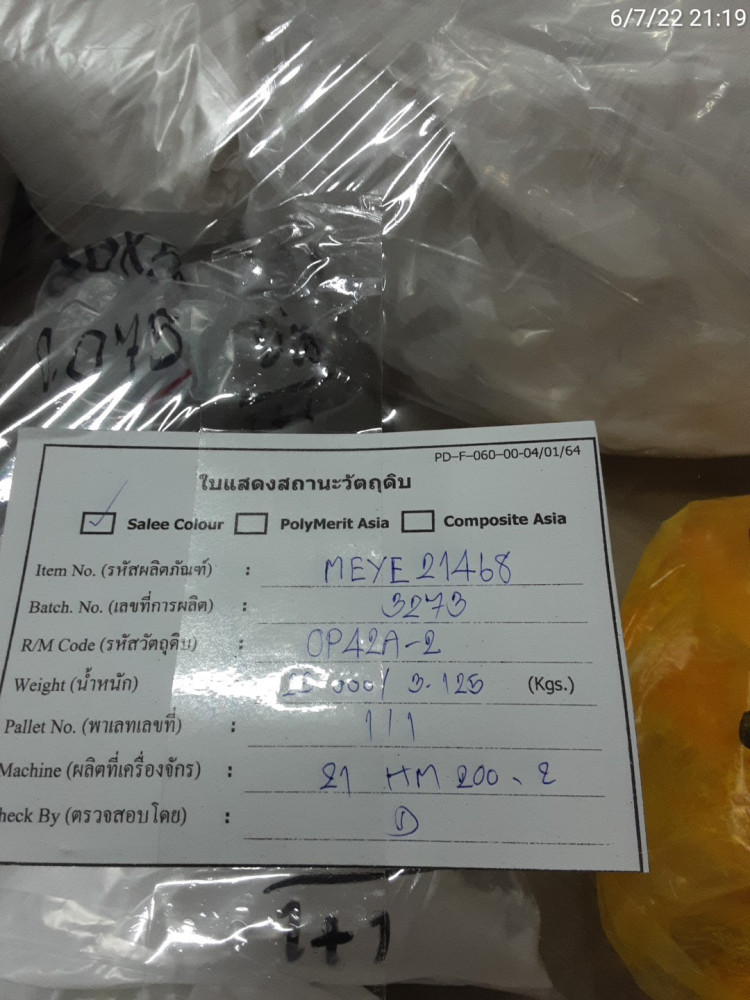 6/7/22 21:19
1.075
PD-F-060-00-04/01/64
ใบแสดงสถานะวัตถุดิบ
Salee Colour PolyMerit Asia Composite Asia
Item No. (รหัสผลิตภัณฑ์) : MEYE 21468
Batch. No. (เลขที่การผลิต) : 3273
R/M Code (รหัสวัตถุดิบ) : OP42A-2
Weight (น้ำหนัก) 3.125 (Kgs.)
Pallet No. (พาเลทเลขที่) : 1/1
Machine (ผลิตที่เครื่องจักร) : 21 HM 200-2
heck By (ตรวจสอบโดย) :
1+1